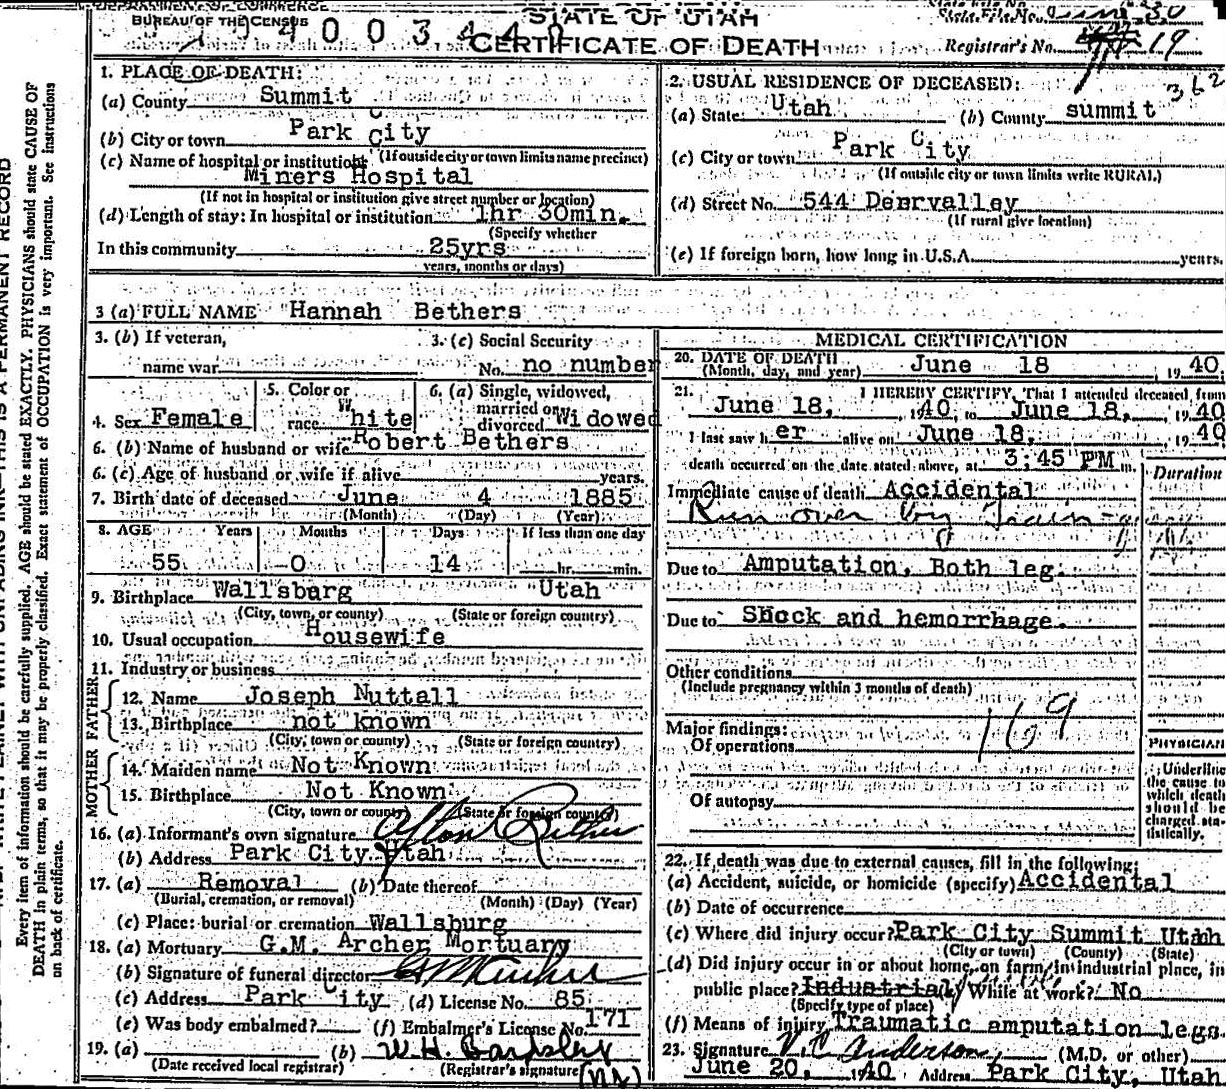 DEPARTMENT OF COMMERCE
BUREAU OF THE CENSUS
STATE OF UTAH
CERTIFICATE OF DEATH
State File No.
Registrar's No. 19
362
1. PLACE OF DEATH:
(a) County Summit
(b) City or town Park City
(If outside city or town limits name precinct)
(c) Name of hospital or institution
Miners Hospital
(If not in hospital or institution give street number or location)
(d) Length of stay: In hospital or institution 1hr 30min.
(Specify whether
In this community 25yrs
years, months or days)
2. USUAL RESIDENCE OF DECEASED:
(a) State Utah (b) County summit
(c) City or town Park City
(If outside city or town limits write RURAL)
(d) Street No. 544 Deervalley
(If rural give location)
(e) If foreign born, how long in U.S.A. years.
3 (a) FULL NAME Hannah Bethers
3. (b) If veteran, name war
3. (c) Social Security No. no number
4. Sex Female
5. Color or race White
6. (a) Single, widowed, married or divorced Widowed
6. (b) Name of husband or wife Robert Bethers
6. (c) Age of husband or wife if alive years.
7. Birth date of deceased June 4 1885
(Month) (Day) (Year)
8. AGE Years Months Days If less than one day
55 0 14 hr. min.
9. Birthplace Wallsburg Utah
(City, town, or county) (State or foreign country)
10. Usual occupation Housewife
11. Industry or business
FATHER
12. Name Joseph Nuttall
13. Birthplace not known
(City, town or county) (State or foreign country)
MOTHER
14. Maiden name Not Known
15. Birthplace Not Known
(City, town or county) (State or foreign country)
16. (a) Informant's own signature
(b) Address Park City Utah
17. (a) Removal (b) Date thereof
(Burial, cremation, or removal) (Month) (Day) (Year)
(c) Place: burial or cremation Wallsburg
18. (a) Mortuary G.M. Archer Mortuary
(b) Signature of funeral director GM Archer
(c) Address Park City (d) License No. 85
(e) Was body embalmed? (f) Embalmer's License No. 171
19. (a) (b) W.H. Bardsley
(Date received local registrar) (Registrar's signature)
MEDICAL CERTIFICATION
20. DATE OF DEATH June 18, 1940
(Month, day, and year)
21. I HEREBY CERTIFY, That I attended deceased from
June 18, 1940, to June 18, 1940
I last saw her alive on June 18, 1940
death occurred on the date stated above, at 3;45 PM m.
Duration
Immediate cause of death Accidental
Run over by Train
Due to Amputation, Both leg.
Due to Shock and hemorrhage.
Other conditions
(Include pregnancy within 3 months of death)
169
Major findings:
Of operations
Of autopsy
PHYSICIAN
Underline the cause to which death should be charged statistically.
22. If death was due to external causes, fill in the following:
(a) Accident, suicide, or homicide (specify) Accidental
(b) Date of occurrence
(c) Where did injury occur? Park City Summit Utah
(City or town) (County) (State)
(d) Did injury occur in or about home, on farm, in industrial place, in
public place? Industrial While at work? No
(Specify type of place)
(f) Means of injury Traumatic amputation legs.
23. Signature Anderson (M.D. or other)
June 20, 1940 Address Park City, Utah
Every item of information should be carefully supplied. AGE should be stated EXACTLY. PHYSICIANS should state CAUSE OF
DEATH in plain terms, so that it may be properly classified. Exact statement of OCCUPATION is very important. See instructions
on back of certificate.
THIS IS A PERMANENT RECORD